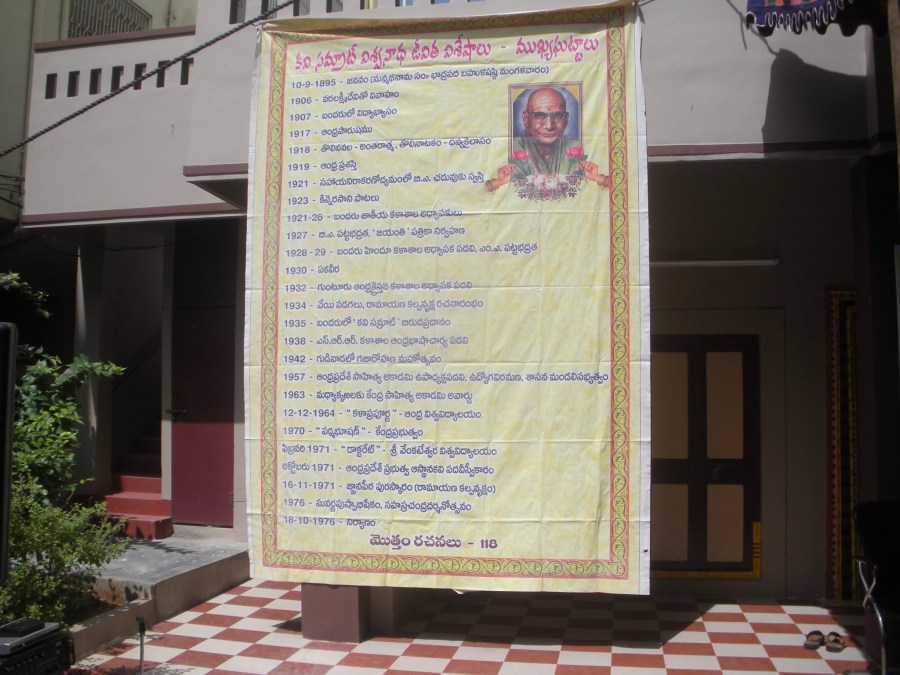 కవి సమ్రాట్ విశ్వనాథ జీవిత విశేషాలు - ముఖ్యఘట్టాలు
10-9-1895 - జననం (మన్మథనామ సం॥ భాద్రపద బహుళషష్ఠి మంగళవారం)
1906 - వరలక్ష్మీదేవితో వివాహం
1907 - బందరులో విద్యాభ్యాసం
1917 - ఆంధ్రపౌరుషము
1918 - తొలినవల - అంతరాత్మ, తొలినాటకం - ధన్యకైలాసం
1919 - ఆంధ్ర ప్రశస్తి
1921 - సహాయనిరాకరణోద్యమంలో బి.ఎ. చదువుకు స్వస్తి
1923 - కిన్నెరసాని పాటలు
1921-26 - బందరు జాతీయ కళాశాల అధ్యాపకులు
1927 - బి.ఎ. పట్టభద్రత, 'జయంతి' పత్రికా నిర్వహణ
1928 - 29 - బందరు హిందూ కళాశాల అధ్యాపక పదవి, ఎం.ఎ. పట్టభద్రత
1930 - ఏకవీర
1932 - గుంటూరు ఆంధ్రక్రైస్తవ కళాశాల అధ్యాపక పదవి
1934 - వేయి పడగలు, రామాయణ కల్పవృక్ష రచనారంభం
1935 - బందరులో 'కవి సమ్రాట్' బిరుదప్రదానం
1938 - ఎస్.ఆర్.ఆర్. కళాశాల ఆంధ్రభాషాచార్య పదవి
1942 - గుడివాడలో గజారోహణ మహోత్సవం
1957 - ఆంధ్రప్రదేశ్ సాహిత్య అకాడమి ఉపాధ్యక్షపదవి, ఉద్యోగవిరమణ, శాసన మండలిసభ్యత్వం
1963 - మధ్యాక్కఱలకు కేంద్ర సాహిత్య అకాడమి అవార్డు
12-12-1964 - "కళాప్రపూర్ణ" - ఆంధ్ర విశ్వవిద్యాలయం
1970 - "పద్మభూషణ్" - కేంద్రప్రభుత్వం
ఫిబ్రవరి 1971 - "డాక్టరేట్" - శ్రీ వేంకటేశ్వర విశ్వవిద్యాలయం
అక్టోబరు 1971 - ఆంధ్రప్రదేశ్ ప్రభుత్వ ఆస్థానకవి పదవీస్వీకారం
16-11-1971 - జ్ఞానపీఠ పురస్కారం (రామాయణ కల్పవృక్షం)
1976 - సువర్ణపుష్పాభిషేకం, సహస్రచంద్రదర్శనోత్సవం
18-10-1976 - నిర్యాణం
మొత్తం రచనలు - 118